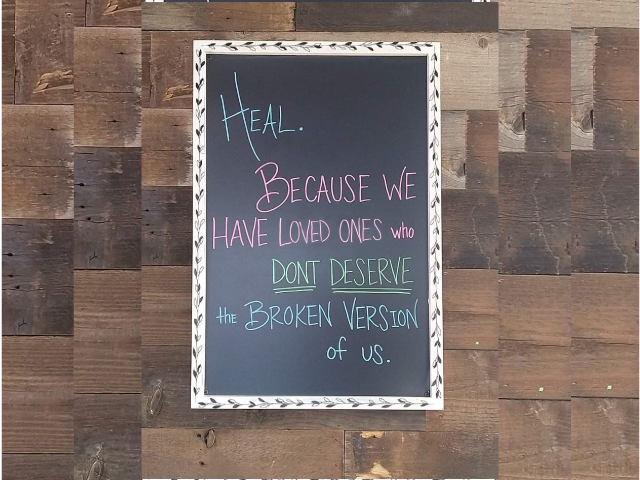 HEAL.
BECAUSE WE
HAVE LOVED ONES who
DONT DESERVE
the BROKEN VERSION
of us.